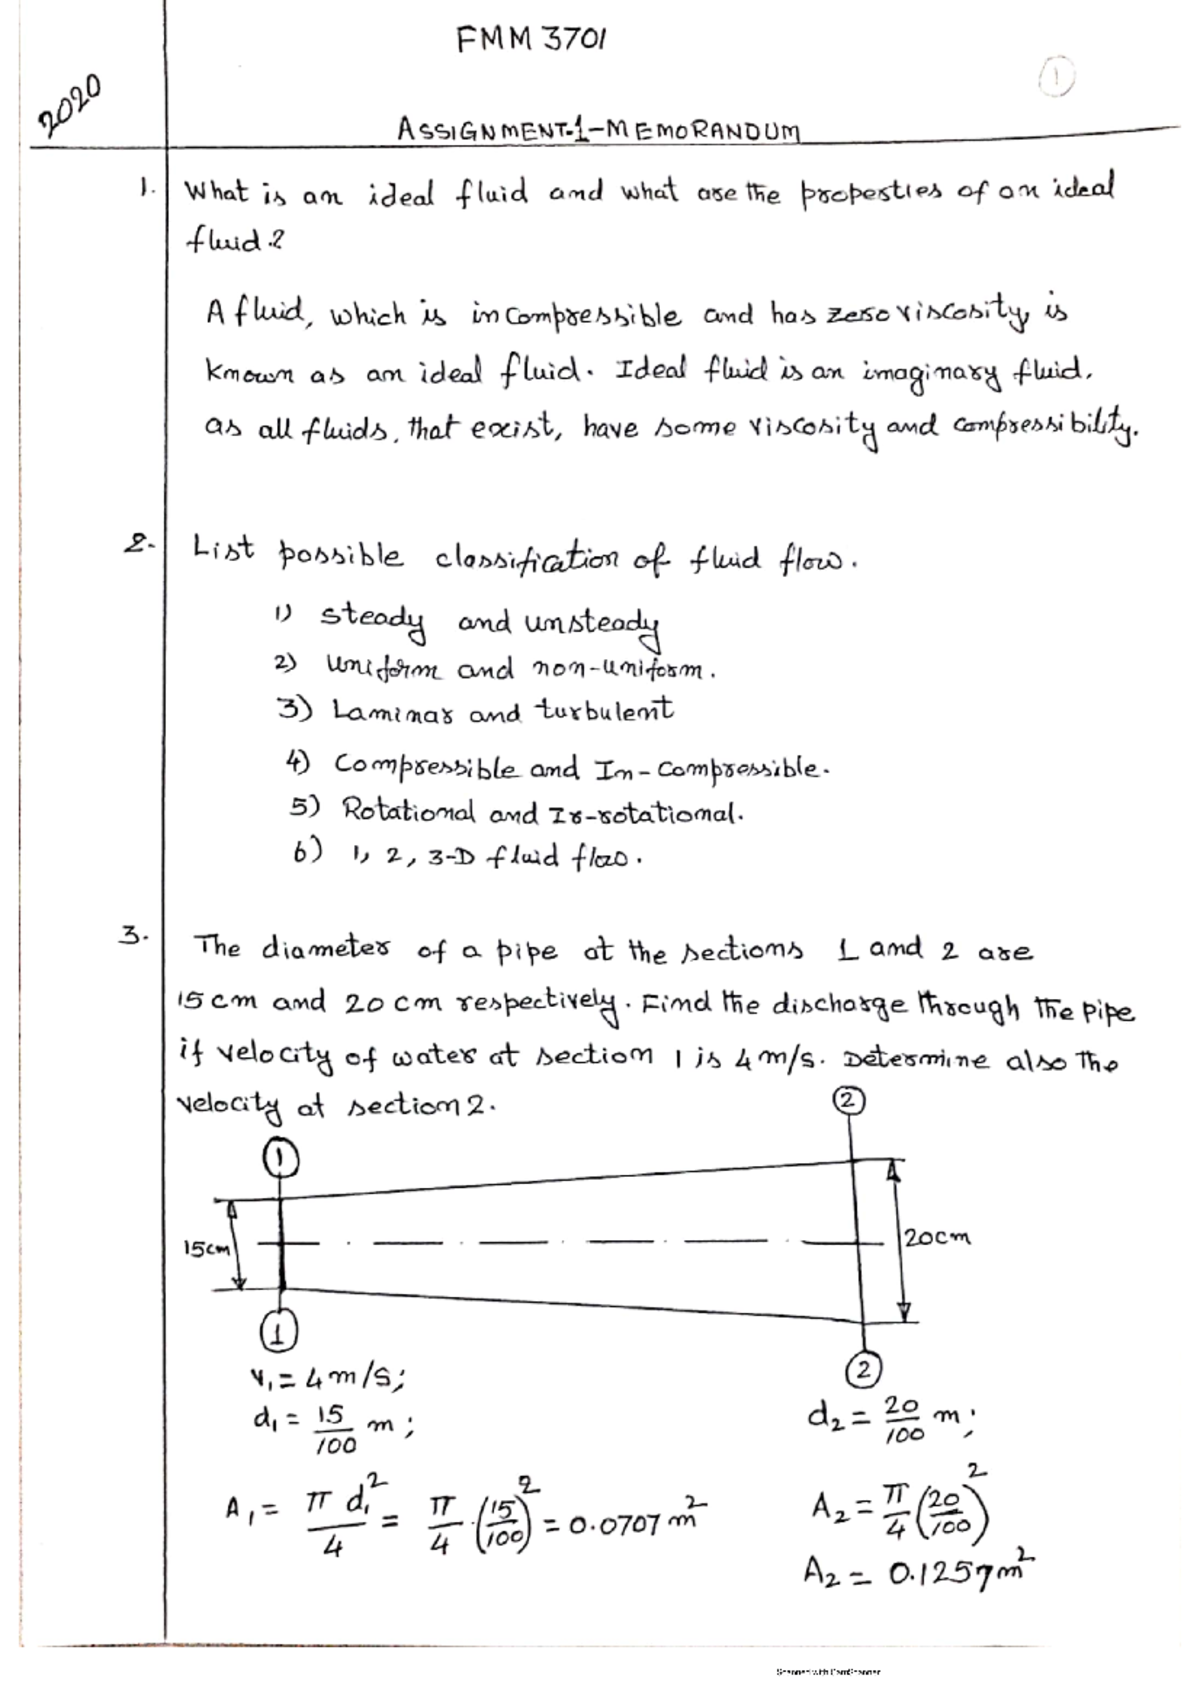 FMM 3701
1
2020
ASSIGNMENT-1-MEMORANDUM
1. What is an ideal fluid and what are the properties of an ideal
fluid?
A fluid, which is incompressible and has zero viscosity, is
known as an ideal fluid. Ideal fluid is an imaginary fluid.
as all fluids, that exist, have some viscosity and compressibility.
2. List possible classification of fluid flow.
1) steady and unsteady
2) uniform and non-uniform.
3) Laminar and turbulent
4) Compressible and In-compressible.
5) Rotational and Ir-rotational.
6) 1, 2, 3-D fluid flow.
3. The diameter of a pipe at the sections 1 and 2 are
15 cm and 20 cm respectively. Find the discharge through the pipe
if velocity of water at section 1 is 4 m/s. Determine also the
velocity at section 2.
2
1
15cm
20cm
1
2
V₁ = 4 m/s;
d₁ = 15/100 m;
d₂ = 20/100 m;
A₁ = πd₁²/4 = π/4 · (15/100)² = 0.0707 m²
A₂ = π/4 (20/100)²
A₂ = 0.1257 m²
Scanned with CamScanner